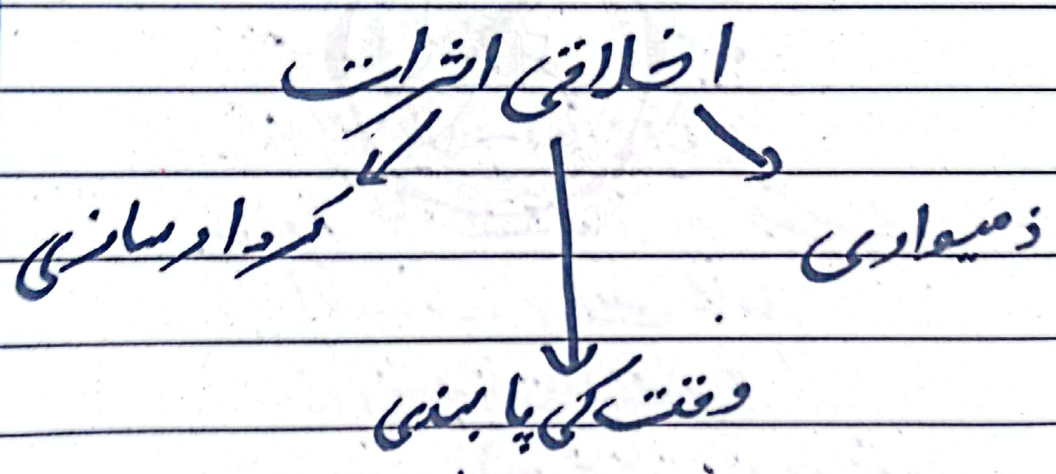 اخلاقی اثرات
ذمیواری
کردار سازی
وقت کی پابندی